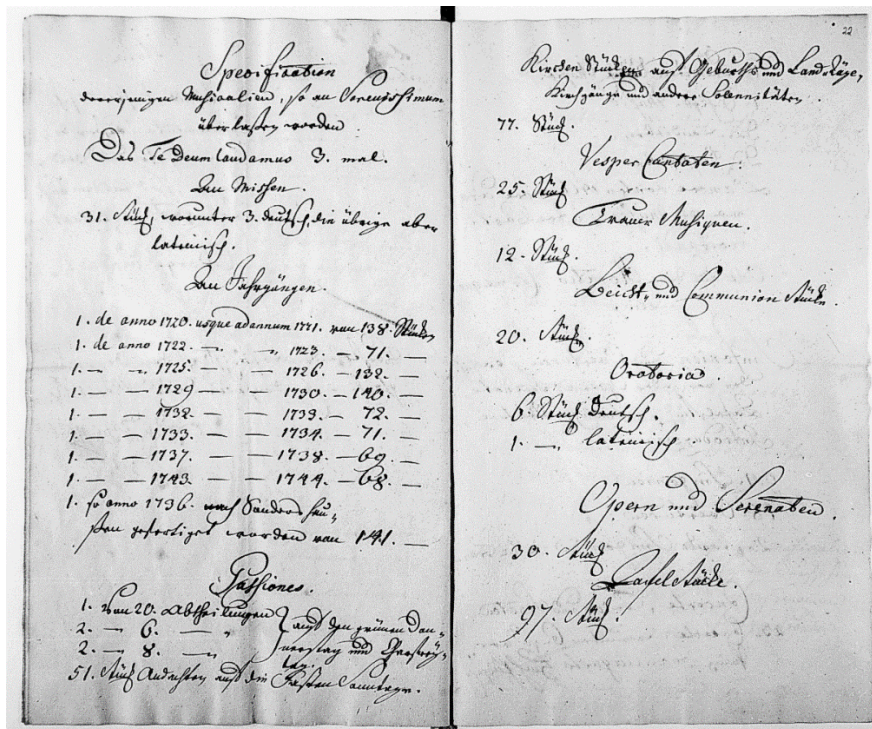 Specification
derer jenigen Musicalien, so an Serenissimum
überlaßen worden
Das Te Deum laudamus 3. mal.
An Missen.
31. Stück, worunter 3. deutsch, die übrige aber
lateinisch.
An Jahrgängen.
1. de anno 1720. usque ad annum 1721. von 138. Stücken
1. de anno 1722. — „ 1723. — 71. —
1. — „ 1725. — — 1726. — 132. —
1. — — 1729 — — 1730. — 140. —
1. — — 1732. — — 1733. — 72. —
1. — — 1733. — — 1734. — 71. —
1. — — 1737. — — 1738. — 69. —
1. — — 1743. — — 1744. — 68. —
1. so anno 1736. nach Sonders hau-
ßen gefertiget worden von 141. —
Passiones.
1. von 20. Abtheilungen
2. — 6. — „ auf den grünen Don-
2. — 8. — „ nerstag und Charfrey-
tag.
51. Stück Andachten auf die Fasten Sonntage.
22
Kirchen Stücke auf Geburths und Landtäge,
Kirchgänge und andere Solennitäten.
77. Stück.
Vesper Cantaten.
25. Stück
Trauer Musiquen.
12. Stück.
Beicht- und Communion Stücke.
20. Stück.
Oratoria.
6. Stück deutsch.
1. — lateinisch.
Opern und Serenaten.
30. Stück
Tafel Stücke.
97. Stück.